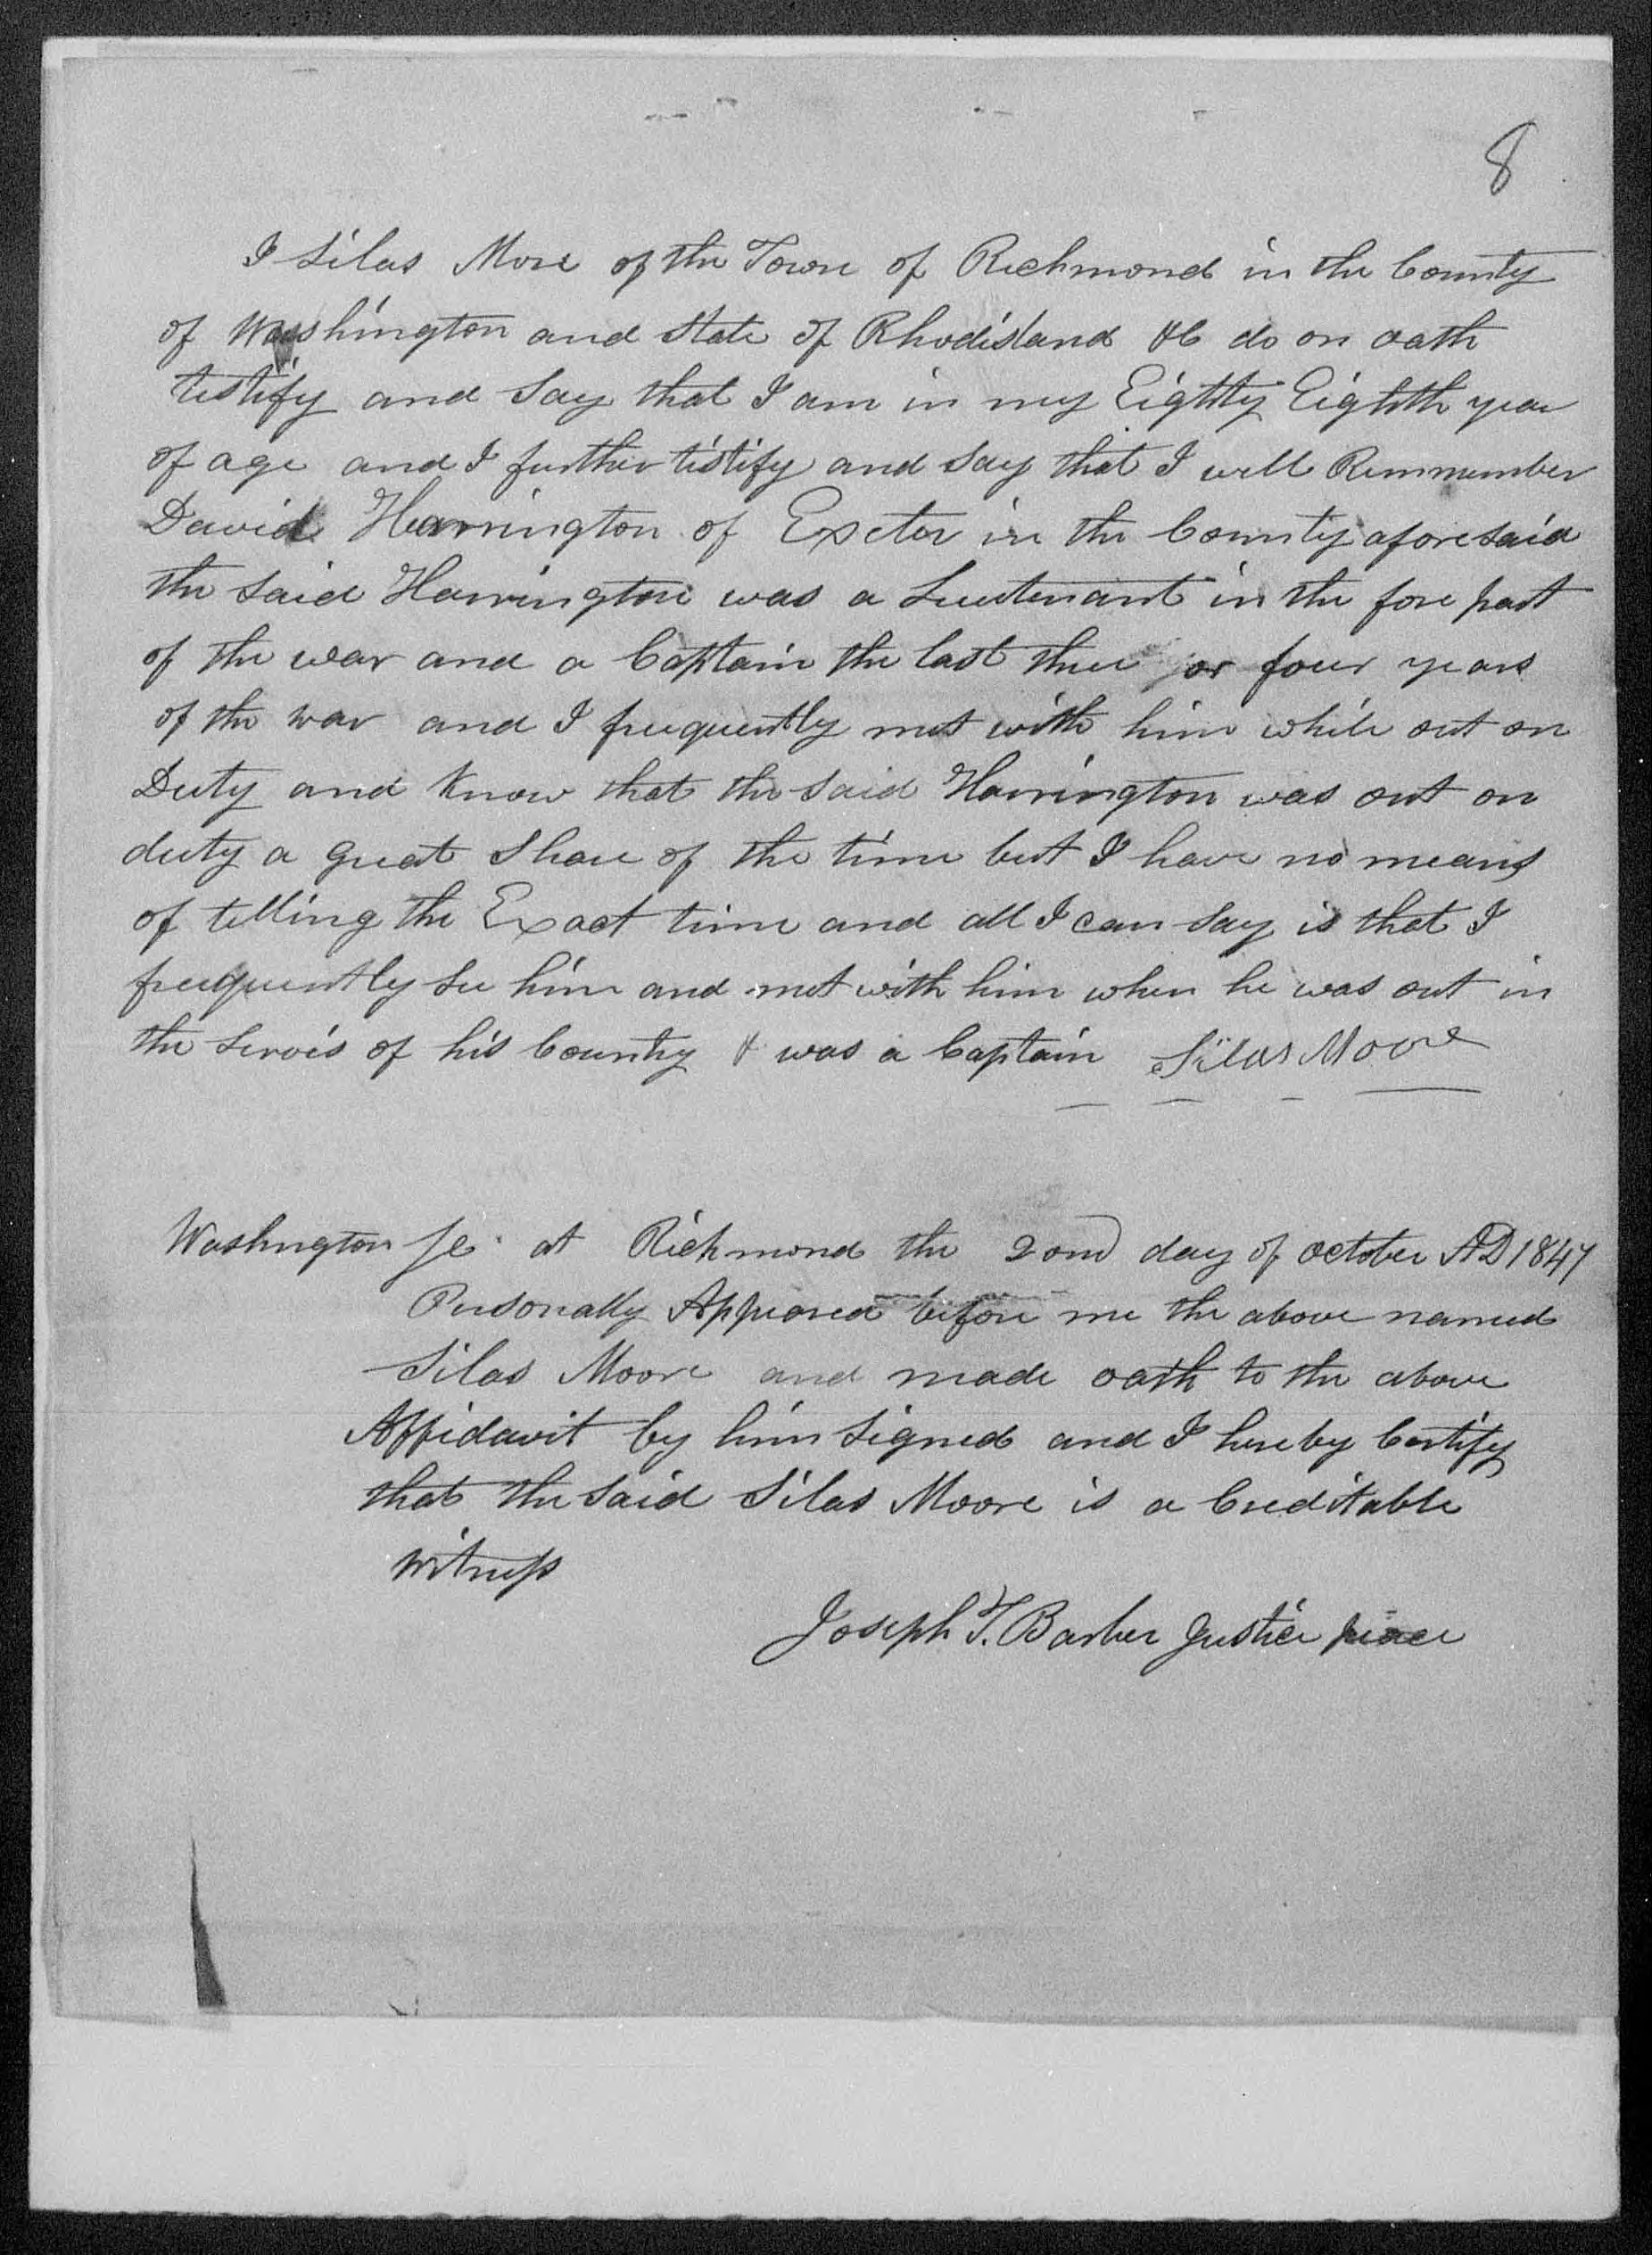 8
I Silas More of the Town of Richmond in the County
of Washington and State of Rhodisland &c do on oath
testify and Say that I am in my Eighty Eighth year
of age and I further testify and Say that I well Remmember
David Harrington of Exeter in the County aforesaid
the Said Harrington was a Lieutenant in the fore part
of the war and a Captain the last three or four years
of the war and I frequently met with him while out on
Duty and Know that the Said Harrington was out on
duty a great Share of the time but I have no means
of telling the Exact time and all I can Say is that I
frequently See him and met with him when he was out in
the Servis of his Country & was a Captain Silas Moore
Washington Sc. at Richmond the 2ond day of october AD 1847
Personally Appeared before me the above named
Silas Moore and made oath to the above
Affidavit by him Signed and I hereby Certify
that the Said Silas Moore is a Creditable
Witness
Joseph T. Barber Justice peace